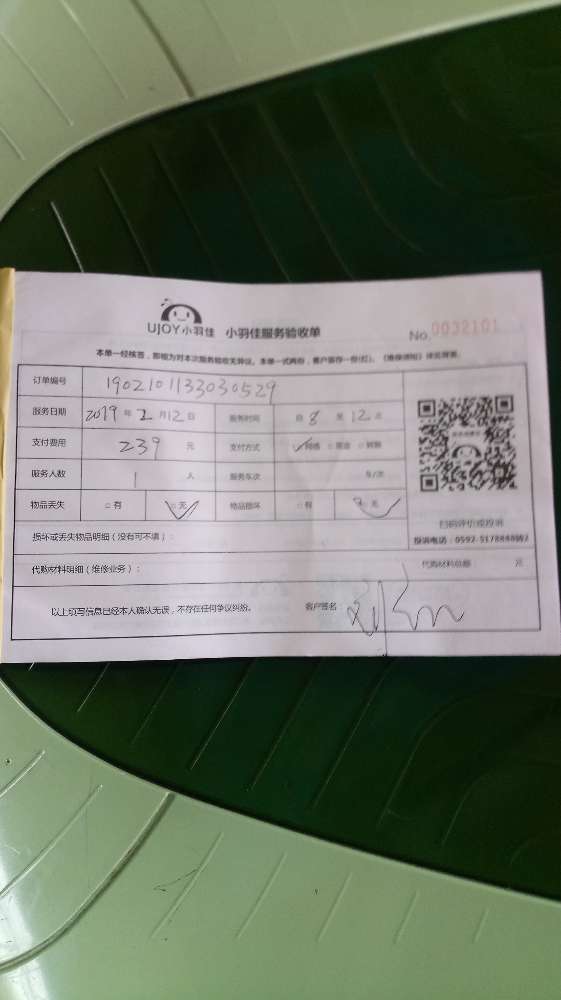 UJOY小羽佳 小羽佳服务验收单
No.0032101
本单一经核签,即视为对本次服务验收无异议。本单一式两份,客户留存一份(红)。《维保须知》详见背面。
订单编号 1902101133030529
服务日期 2019 年 2 月 12 日 服务时间 自 8 至 12 止
支付费用 239 元 支付方式 网络 现金 转账
服务人数 1 人 服务车次 车/次
物品丢失 □有 □无 物品损坏 □有 □无
扫码评价或投诉
损坏或丢失物品明细(没有可不填):
代购材料明细(维修业务): 代购材料总额 元
以上填写信息已经本人确认无误,不存在任何争议纠纷。 客户签名: